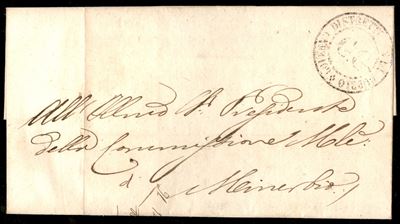 GOVERNO DISTRETT
All' Illmo Sr. Presidente
della Commissione Mle.
di
Minerbio